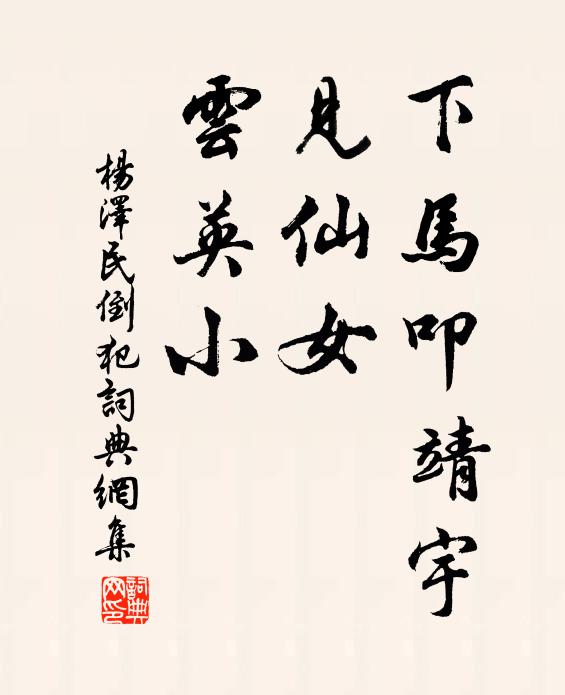 下馬叩靖宇
見仙女
雲英小
楊澤民倒犯詞典網集
詞典网印